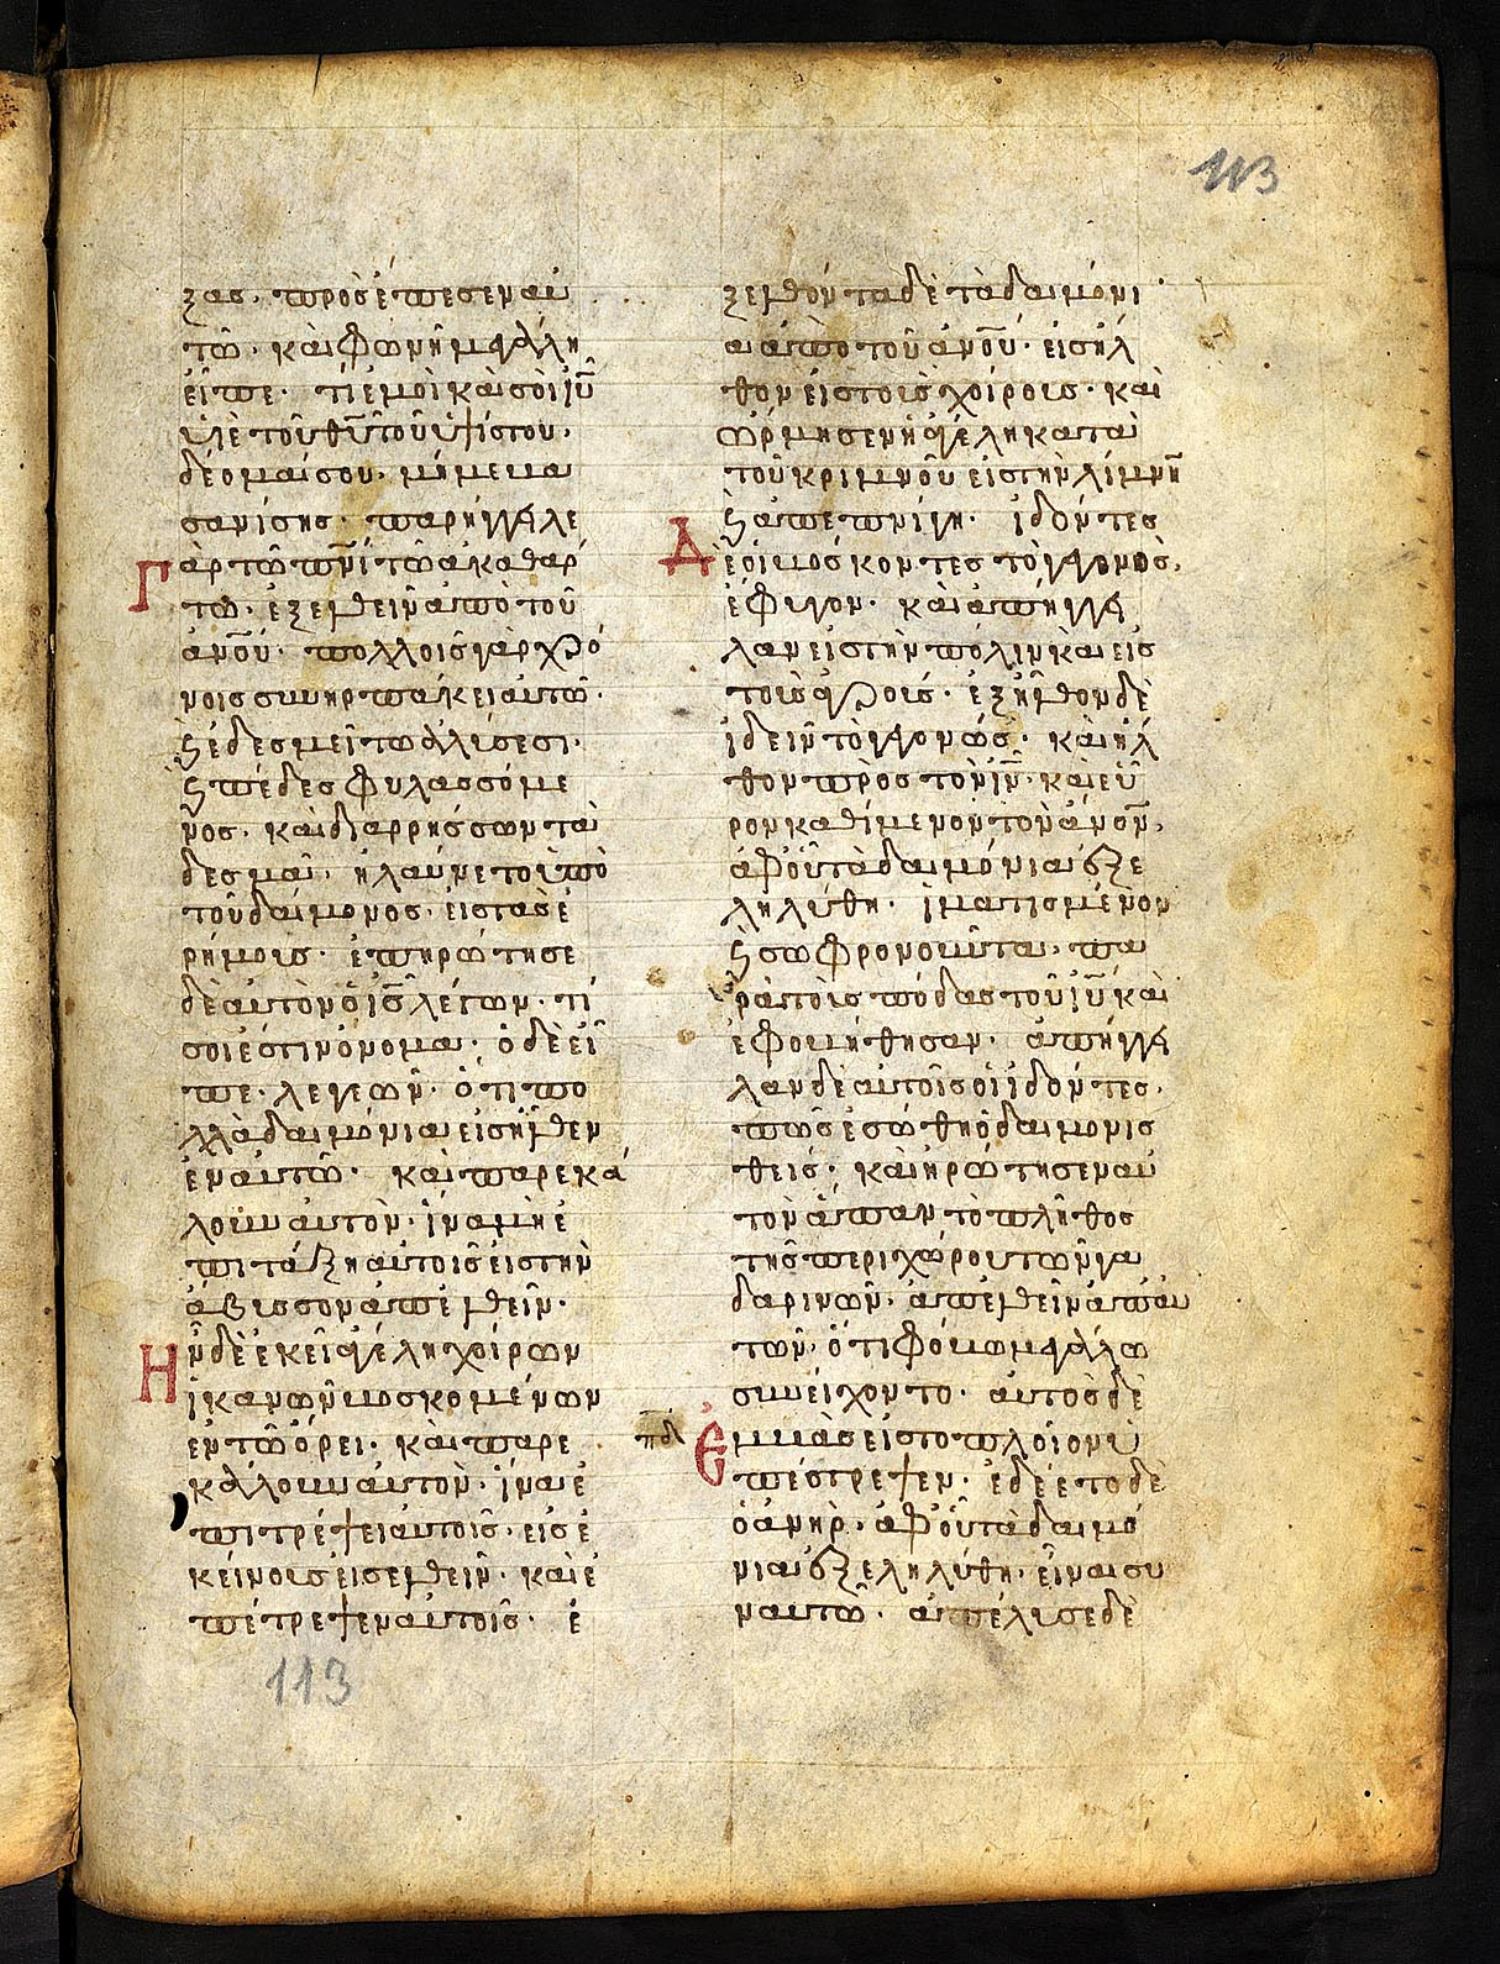 113
ξας· προσέπεσεν αὐ
τῶ· καὶ φωνῆ μεγάλη
εἶπε· τί ἐμοὶ καὶ σοὶ ἰ̅υ̅
υἱὲ τοῦ θ̅υ̅ τοῦ ὑψίστου·
δέομαί σου· μή με βα
σανίσης· παρήγγελε
Γὰρ τῶ π̅ν̅ι̅ τῶ ἀκαθάρ
τω· ἐξελθεῖν ἀπὸ τοῦ
ἀ̅ν̅ο̅υ̅· πολλοῖς γὰρ χρό
νοις συνηρπάκει αὐτῶ·
ϗ ἐδεσμεῖτω ἁλύσεσι·
ϗ πέδες φυλασσόμε
νος· καὶ διαρρήσσων τὰ
δεσμά· ἠλαύνετο ὑπὸ
τοῦ δαίμονος· εἰς τὰς ἐ
ρήμοις· ἐπηρώτησε
δὲ αὐτὸν ὁ ἰ̅ς̅ λέγων· τί
σοι ἐστιν ὄνομα· ὁ δὲ εἶ
πε· λεγεών· ὅτι πο
λλὰ δαιμόνια εἰσῆλθεν
ἐν αὐτῶ· καὶ παρεκά
λουν αὐτὸν· ἵνα μὴ ἐ
πιτάξη αὐτοῖς εἰς τὴν
ἄβυσσον ἀπελθεῖν·
Ἦν δὲ ἐκεῖ ἀγέλη χοίρων
ἱκανῶν βοσκομένων
ἐν τῶ ὄρει· καὶ παρε
κάλουν αὐτὸν· ἵνα ἐ
πιτρέψει αὐτοῖς· εἰς ἐ
κείνους εἰσελθεῖν· καὶ ἐ
πέτρεψεν αὐτοῖς· ἐ
113
ξελθόντα δὲ τὰ δαιμόνι
α ἀπὸ τοῦ ἀ̅ν̅ο̅υ̅· εἰσῆλ
θον εἰς τοὺς χοίρους· καὶ
ὥρμησεν ἡ ἀγέλη κατὰ
τοῦ κριμνοῦ εἰς τὴν λίμνη̅
ϗ ἀπεπνίγη· ἰδόντες
Δὲ οἱ βόσκοντες τὸ γεγονὸς·
ἔφυγον· καὶ ἀπήγγει
λαν εἰς τὴν πόλιν καὶ εἰς
τοὺς ἀγρούς· ἐξῆλθον δὲ
ἰδεῖν τὸ γεγονώς· καὶ ἦλ
θον πρὸς τὸν ἰ̅ν̅· καὶ εὗ
ρον καθίμενον τὸν ἄ̅ν̅ο̅ν̅·
ἀφ' οὗ τὰ δαιμόνια ἐξε
ληλύθη· ἱματισμένον
ϗ σωφρονοῦντα· πα
ρὰ τοὺς πόδας τοῦ ἰ̅υ̅ καὶ
ἐφοβήθησαν· ἀπήγγει
λαν δὲ αὐτοῖς οἱ ἰδόντες·
πῶς ἐσώθη ὁ δαιμονισ
θείς· καὶ ἠρώτησεν αὐ
τὸν ἅπαν τὸ πλῆθος
τῆς περιχώρου τῶν γα
δαρινῶν· ἀπελθεῖν ἀπ' αὐ
τῶν· ὅτι φόβω μεγάλω
συνείχοντο· αὐτὸς δὲ
Ἐμβὰς εἰς τὸ πλοῖον ὑ
πέστρεψεν· ἐδέετο δὲ
ὁ ἀνὴρ· ἀφ' οὗ τὰ δαιμό
νια ἐξεληλύθη· εἶναι σὺ
ν αὐτῶ· ἀπέλυσε δὲ